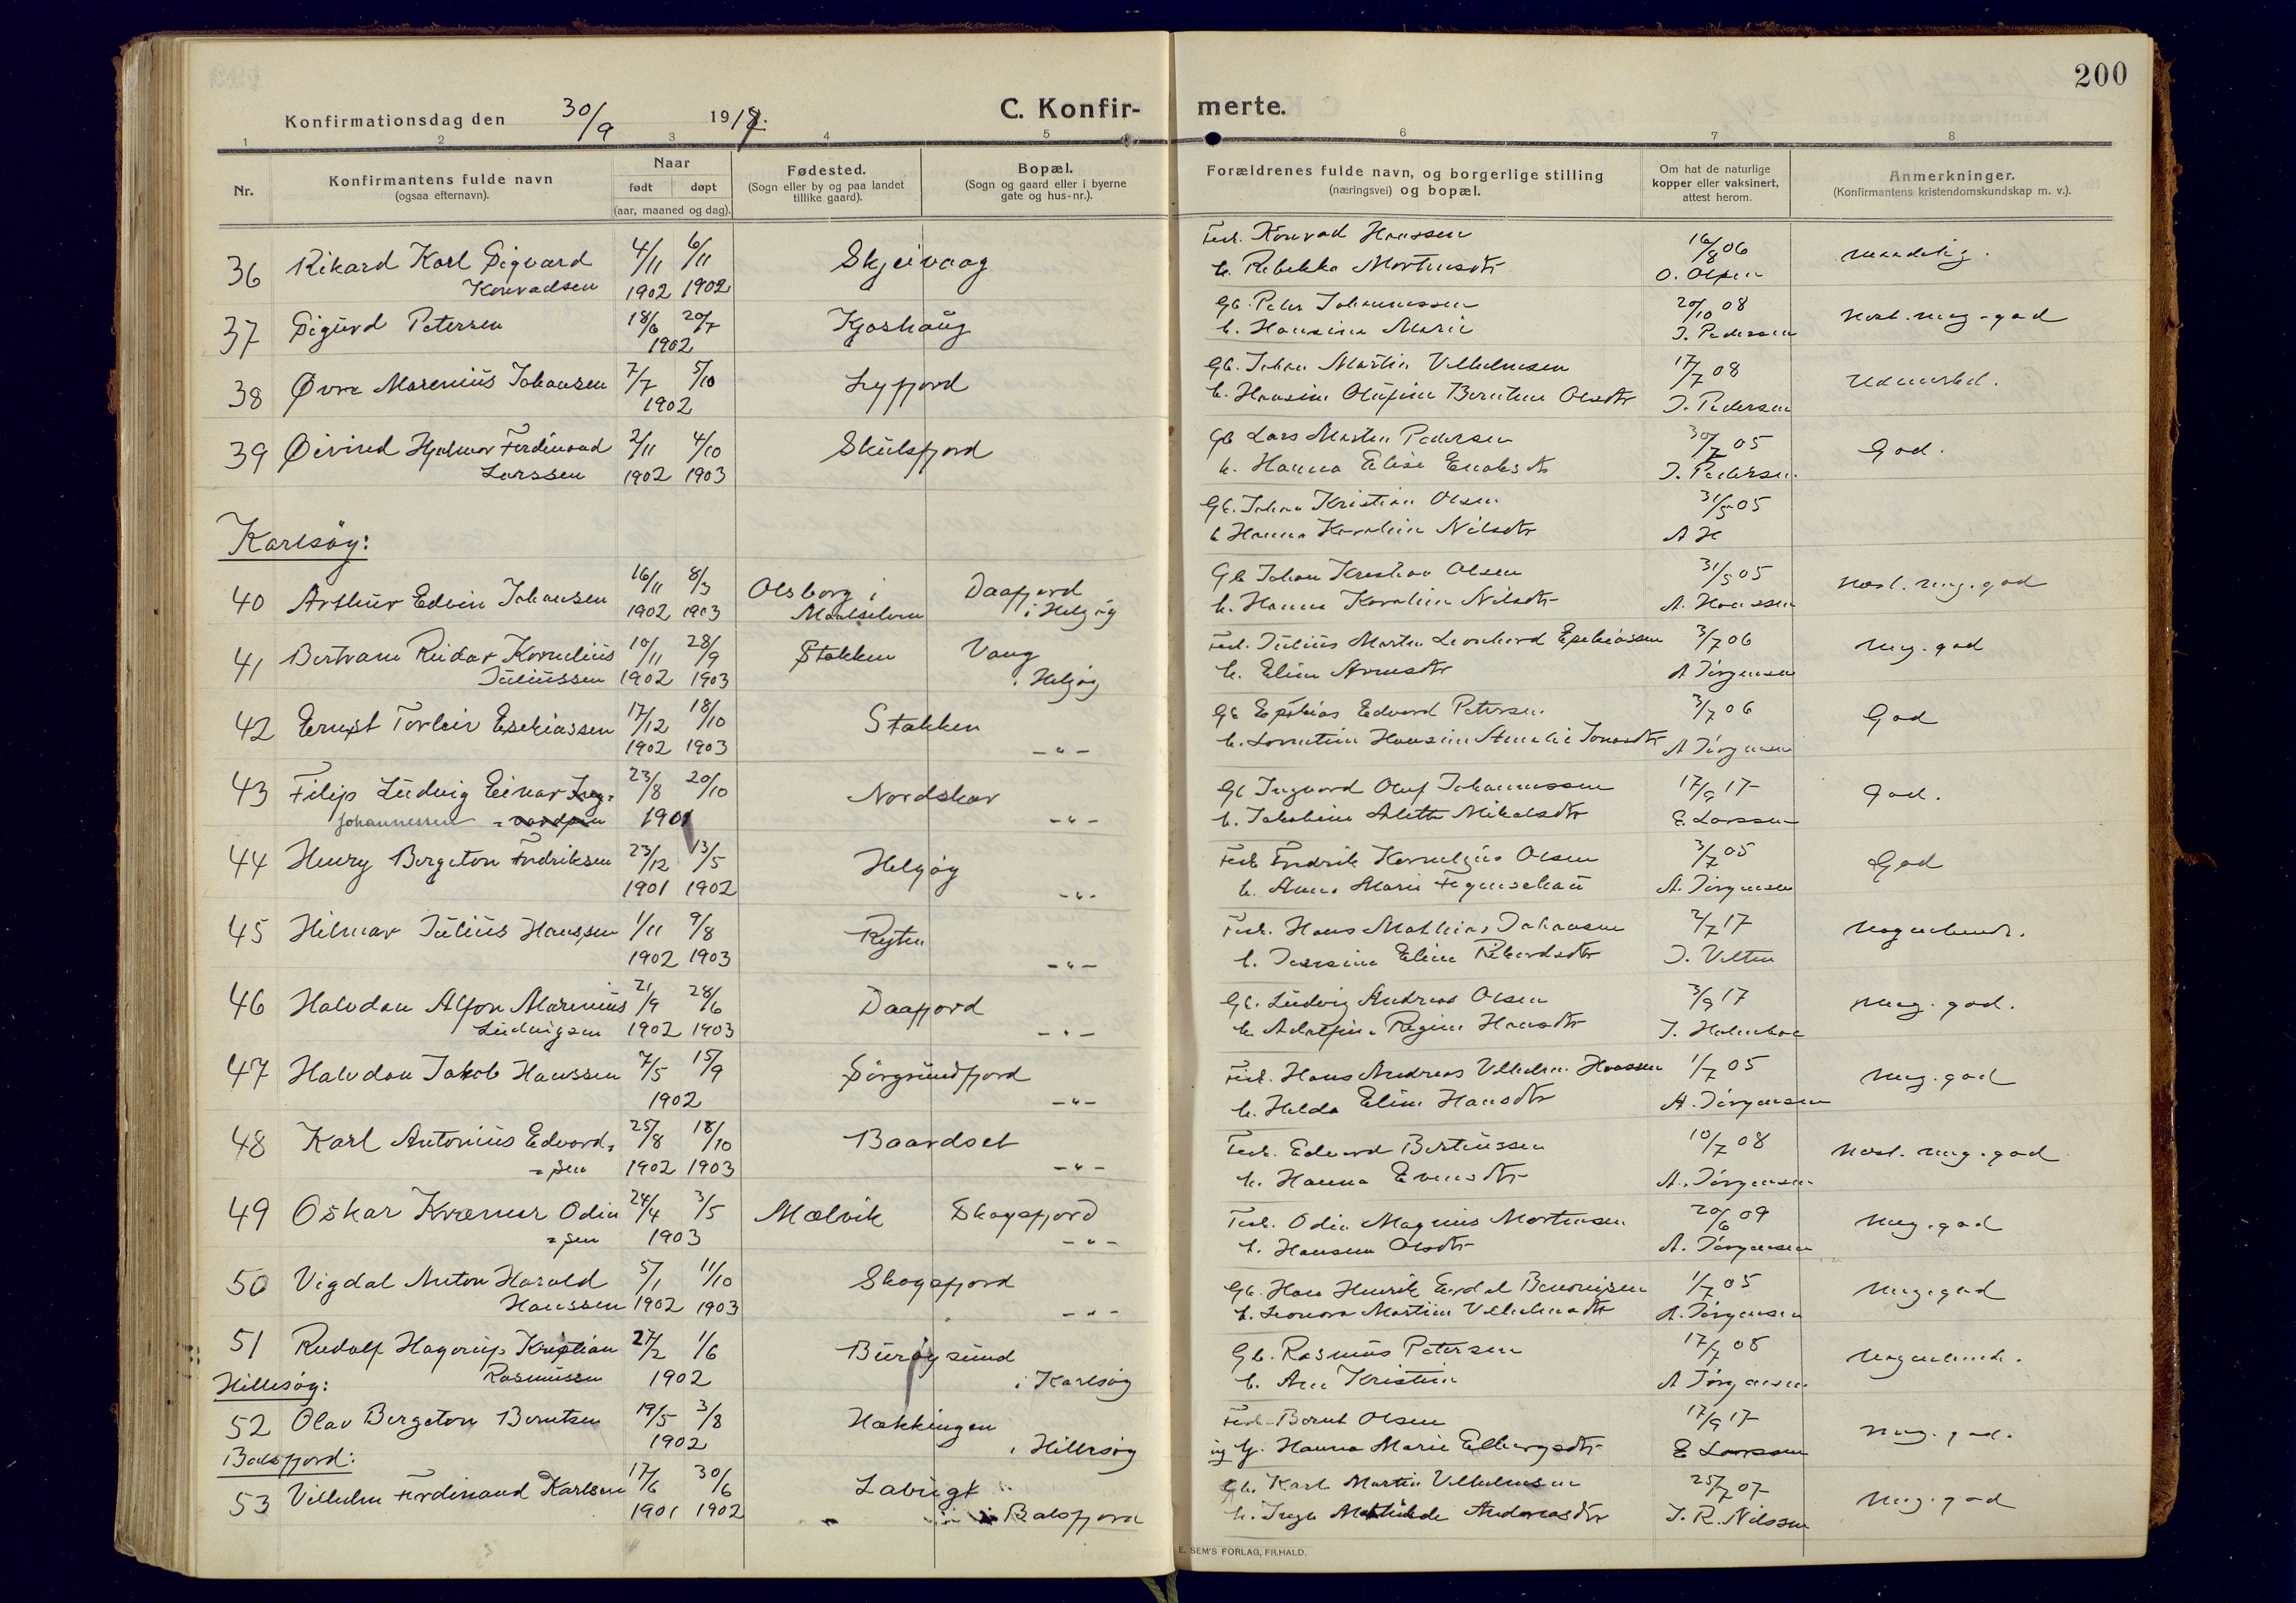 200
Konfirmationsdag den 30/9 1917.
C. Konfirmerte.
1 2 3 4 5 6 7 8
Nr.
Konfirmantens fulde navn
(ogsaa efternavn).
Naar
født døpt
(aar, maaned og dag).
Fødested.
(Sogn eller by og paa landet
tillike gaard).
Bopæl.
(Sogn og gaard eller i byerne
gate og hus-nr.).
Forældrenes fulde navn, og borgerlige stilling
(næringsvei) og bopæl.
Om hat de naturlige
kopper eller vaksinert,
attest herom.
Anmerkninger.
(Konfirmantens kristendomskundskap m. v.).
36 Rikard Karl Sigvard 4/11 6/11 Skjeivaag Fisk. Konrad Hanssen 16/8 06 maadelig.
Konradsen 1902 1902 h. Rebekka Mortensdtr O. Olsen
37 Sigurd Petersen 18/6 20/7 Kjoshaug Gb. Peter Johannessen 20/10 08 næst. meg. god
1902 h. Hansine Marie J. Pedersen
38 Øvre Marenius Johansen 7/7 5/10 Lyfjord Gb. Johan Martin Vilhelmsen 17/7 08 udmerket.
1902 h. Hansine Olufine Berntine Olsdtr J. Pedersen
39 Øivind Hjalmar Ferdinand 2/11 4/10 Skulsfjord Gb Lars Martin Pedersen 30/7 05 God.
Larssen 1902 1903 h. Hanna Elise Enoksdtr J. Pedersen.
Gb. Johan Kristian Olsen 31/5 05
Karlsøy: h Hanna Karoline Nilsdtr A H
40 Arthur Edvin Johansen 16/11 8/3 Olsborg i Daafjord Gb Johan Kristian Olsen 31/5 05 næst. meg. god
1902 1903 Maalselven i Helgøy h. Hanna Karoline Nilsdtr A. Hanssen
41 Bertram Reidar Kornelius 10/11 28/9 Stakken Vang Fisk. Julius Martin Leonhard Esekiassen 3/7 06 meg. god
Juliussen 1902 1903 i Helgøy h. Eline Arnesdtr A Jörgensen
42 Ernst Torleir Esekiassen 17/12 18/10 Stakken Gb Esekias Edvard Petersen 3/7 06 God
1902 1903 -"- h. Lorentine Hansine Amalie Jonasdtr A Jörgensen
43 Filip Ludvig Einar Ing= 23/8 20/10 Nordskar Gb Ingvard Oluf Johannessen 17/9 17 God.
Johannessen =vardsen 1901 -"- h. Jakobine Alette Mikalsdtr E. Larssen
44 Henry Bergeton Fredriksen 23/12 13/5 Helgøy Fisk Fredrik Kornelius Olsen 3/7 05 God
1901 1902 -"- h. Anna Marie Figenschau A. Jörgensen
45 Hilmar Julius Hanssen 1/11 9/8 Ryten Fisk. Hans Mathias Johansen 2/7 17 Nogenlunde.
1902 1903 -"- h. Jensine Eline Rikardsdtr J. Velten
46 Halvdan Alfon Marenius 21/9 28/6 Daafjord Gb. Ludvig Andreas Olsen 3/9 17 meg. god.
Ludvigsen 1902 1903 -"- h. Adolfine Regine Hansdtr J. Holmboe
47 Halvdan Jakob Hanssen 7/5 15/9 Sörgrundfjord Fisk. Hans Andreas Vilhelm Hanssen 1/7 05 meg. god
1902 -"- h. Hilda Eline Hansdtr A. Jörgensen
48 Karl Antonius Edvard= 25/8 18/10 Baardset Fisk. Edvard Bertinussen 10/7 08 næst. meg. god
=sen 1902 1903 -"- h. Hanna Evensdtr A. Jörgensen
49 Oskar Kræmer Odin 24/4 3/5 Mælvik Skogsfjord Fisk. Odin Magnus Mortensen 20/6 09 meg. god
=sen 1903 -"- h. Hansine Olsdtr A. Jörgensen
50 Vigdal Anton Harald 5/1 11/10 Skogsfjord Gb. Hans Henrik Eidal Benonisen 1/7 05 Meg. god
Hanssen 1902 1903 -"- h. Leonora Martine Vilhelmsdtr A. Jörgensen
51 Rudolf Hagerup Kristian 27/2 1/6 Burøysund Gb. Rasmus Petersen 17/7 08 Nogenlunde.
Hillesøy: Rasmussen 1902 i Karlsøy h. Ane Kristine A Jörgensen
52 Olav Bergeton Berntsen 19/5 3/8 Hækkingen Fisk. Bernt Olsen 17/9 17 meg. god.
1902 i Hillesøy ug P. Hanna Marie Ellingsdtr E Larssen
Balsfjord:
53 Vilhelm Ferdinand Karlsen 17/6 30/6 Labugt Gb. Karl Martin Vilhelmsen 25/7 07 Meg. god
1901 1902 i Balsfjord h. Inga Mathilde Andreasdtr J. R. Nilssen
E. SEM'S FORLAG, FR.HALD.